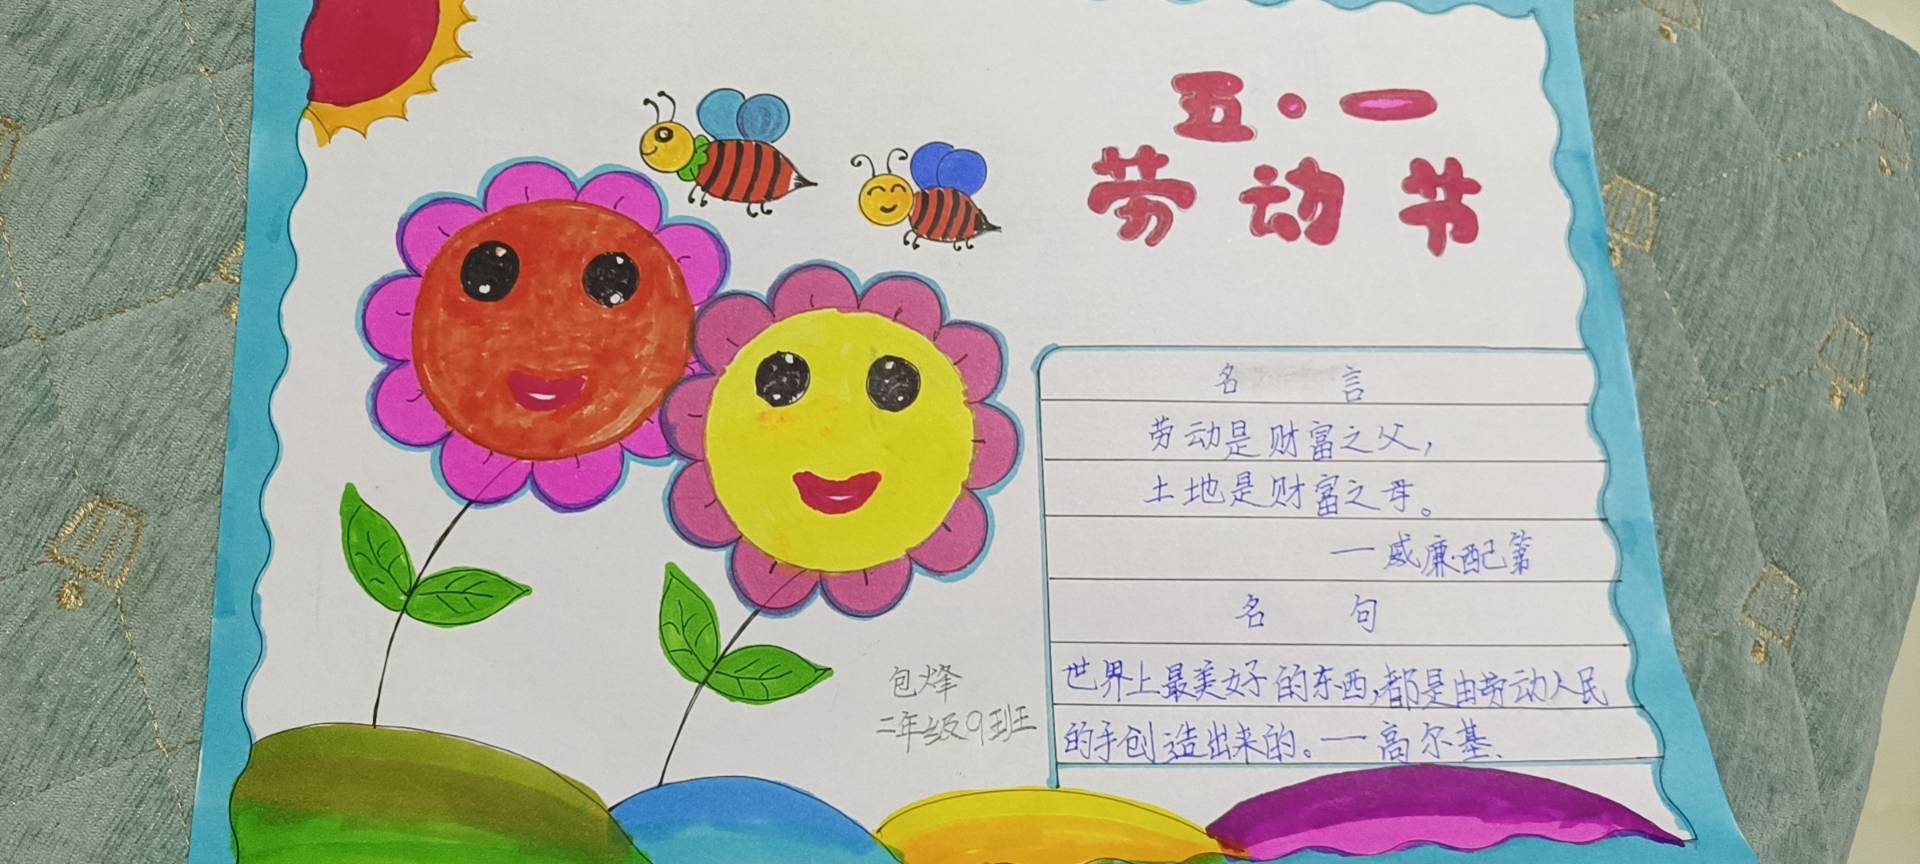 五·一
劳动节
名 言
劳动是财富之父，
土地是财富之母。
一威廉·配第
名 句
世界上最美好的东西，都是由劳动人民
的手创造出来的。一高尔基、
包烽
二年级9班